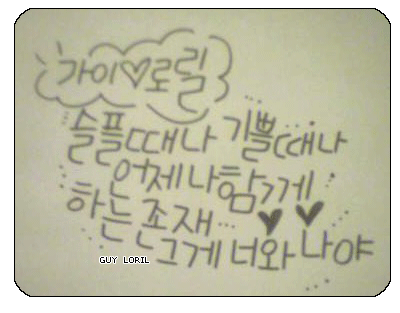 가이♡로릴
슬플때나 기쁠때나
어제나함께
하는 존재... ♥ ♥
그게 너와 나야
GUY LORIL